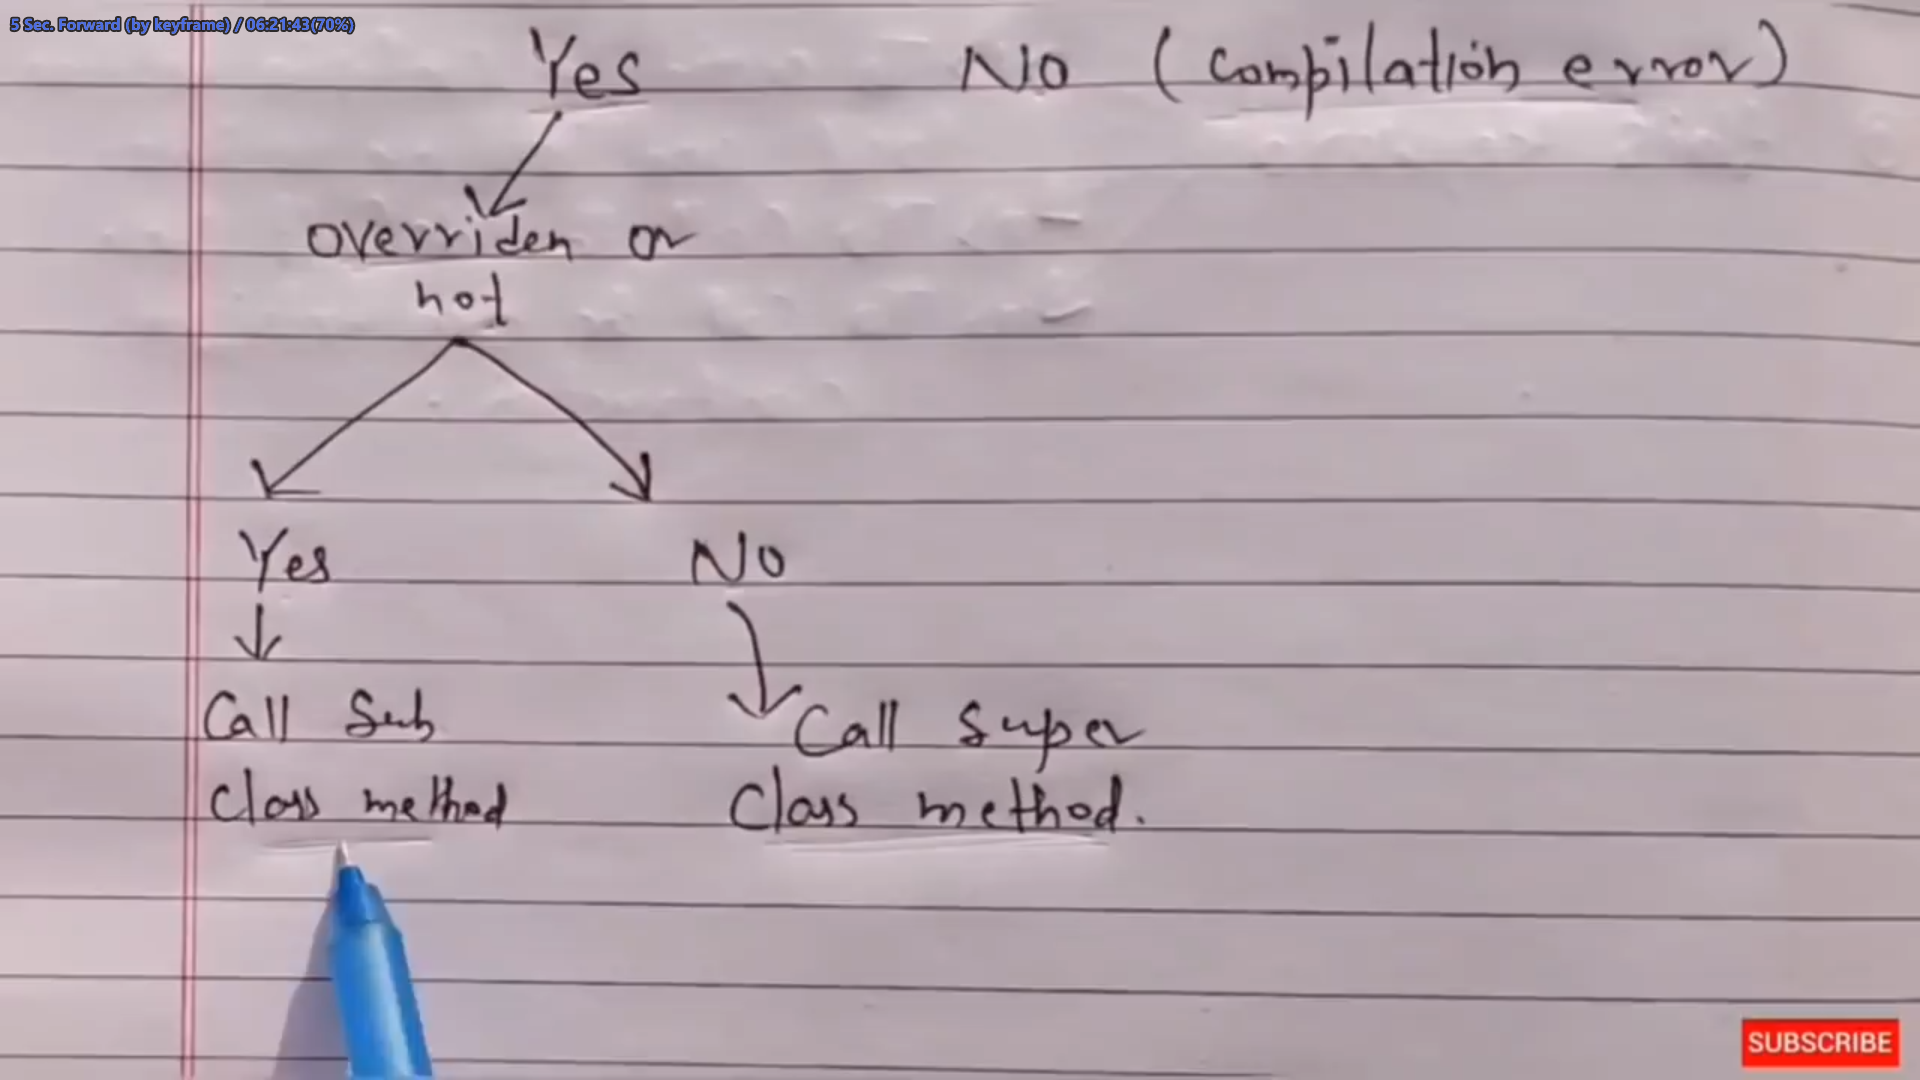 5 Sec. Forward (by keyframe) / 06:21:43(70%)
Yes NO (compilation error)
overriden or
not
Yes NO
Call Sub
Class method
Call super
Class method.
SUBSCRIBE